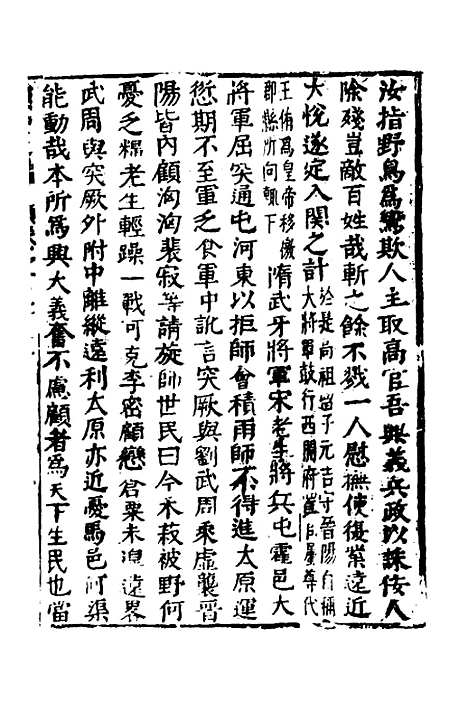 汝指野鳥爲鸞欺人主取高官吾興義兵政以誅佞人
除殘豈敵百姓哉斬之餘不戮一人慰撫使復業遠近
大悅遂定入關之計於是高祖留子元吉守晉陽自稱大將軍鼓行西開府崔自屬尊代
王侑爲皇帝移檄郡縣所向輒下隋武牙將軍宋老生將兵屯霍邑大
將軍屈突通屯河東以拒師會積雨師不得進太原運
愆期不至軍乏食軍中訛言突厥與劉武周乘虛襲晉
陽皆內顧洶洶裴寂等請旋師世民曰今禾菽被野何
憂乏糧老生輕躁一戰可克李密顧戀倉粟未遑遠畧
武周與突厥外附中離縱遠利太原亦近憂馬邑何渠
能動哉本所爲興大義奮不慮顧者爲天下生民也當